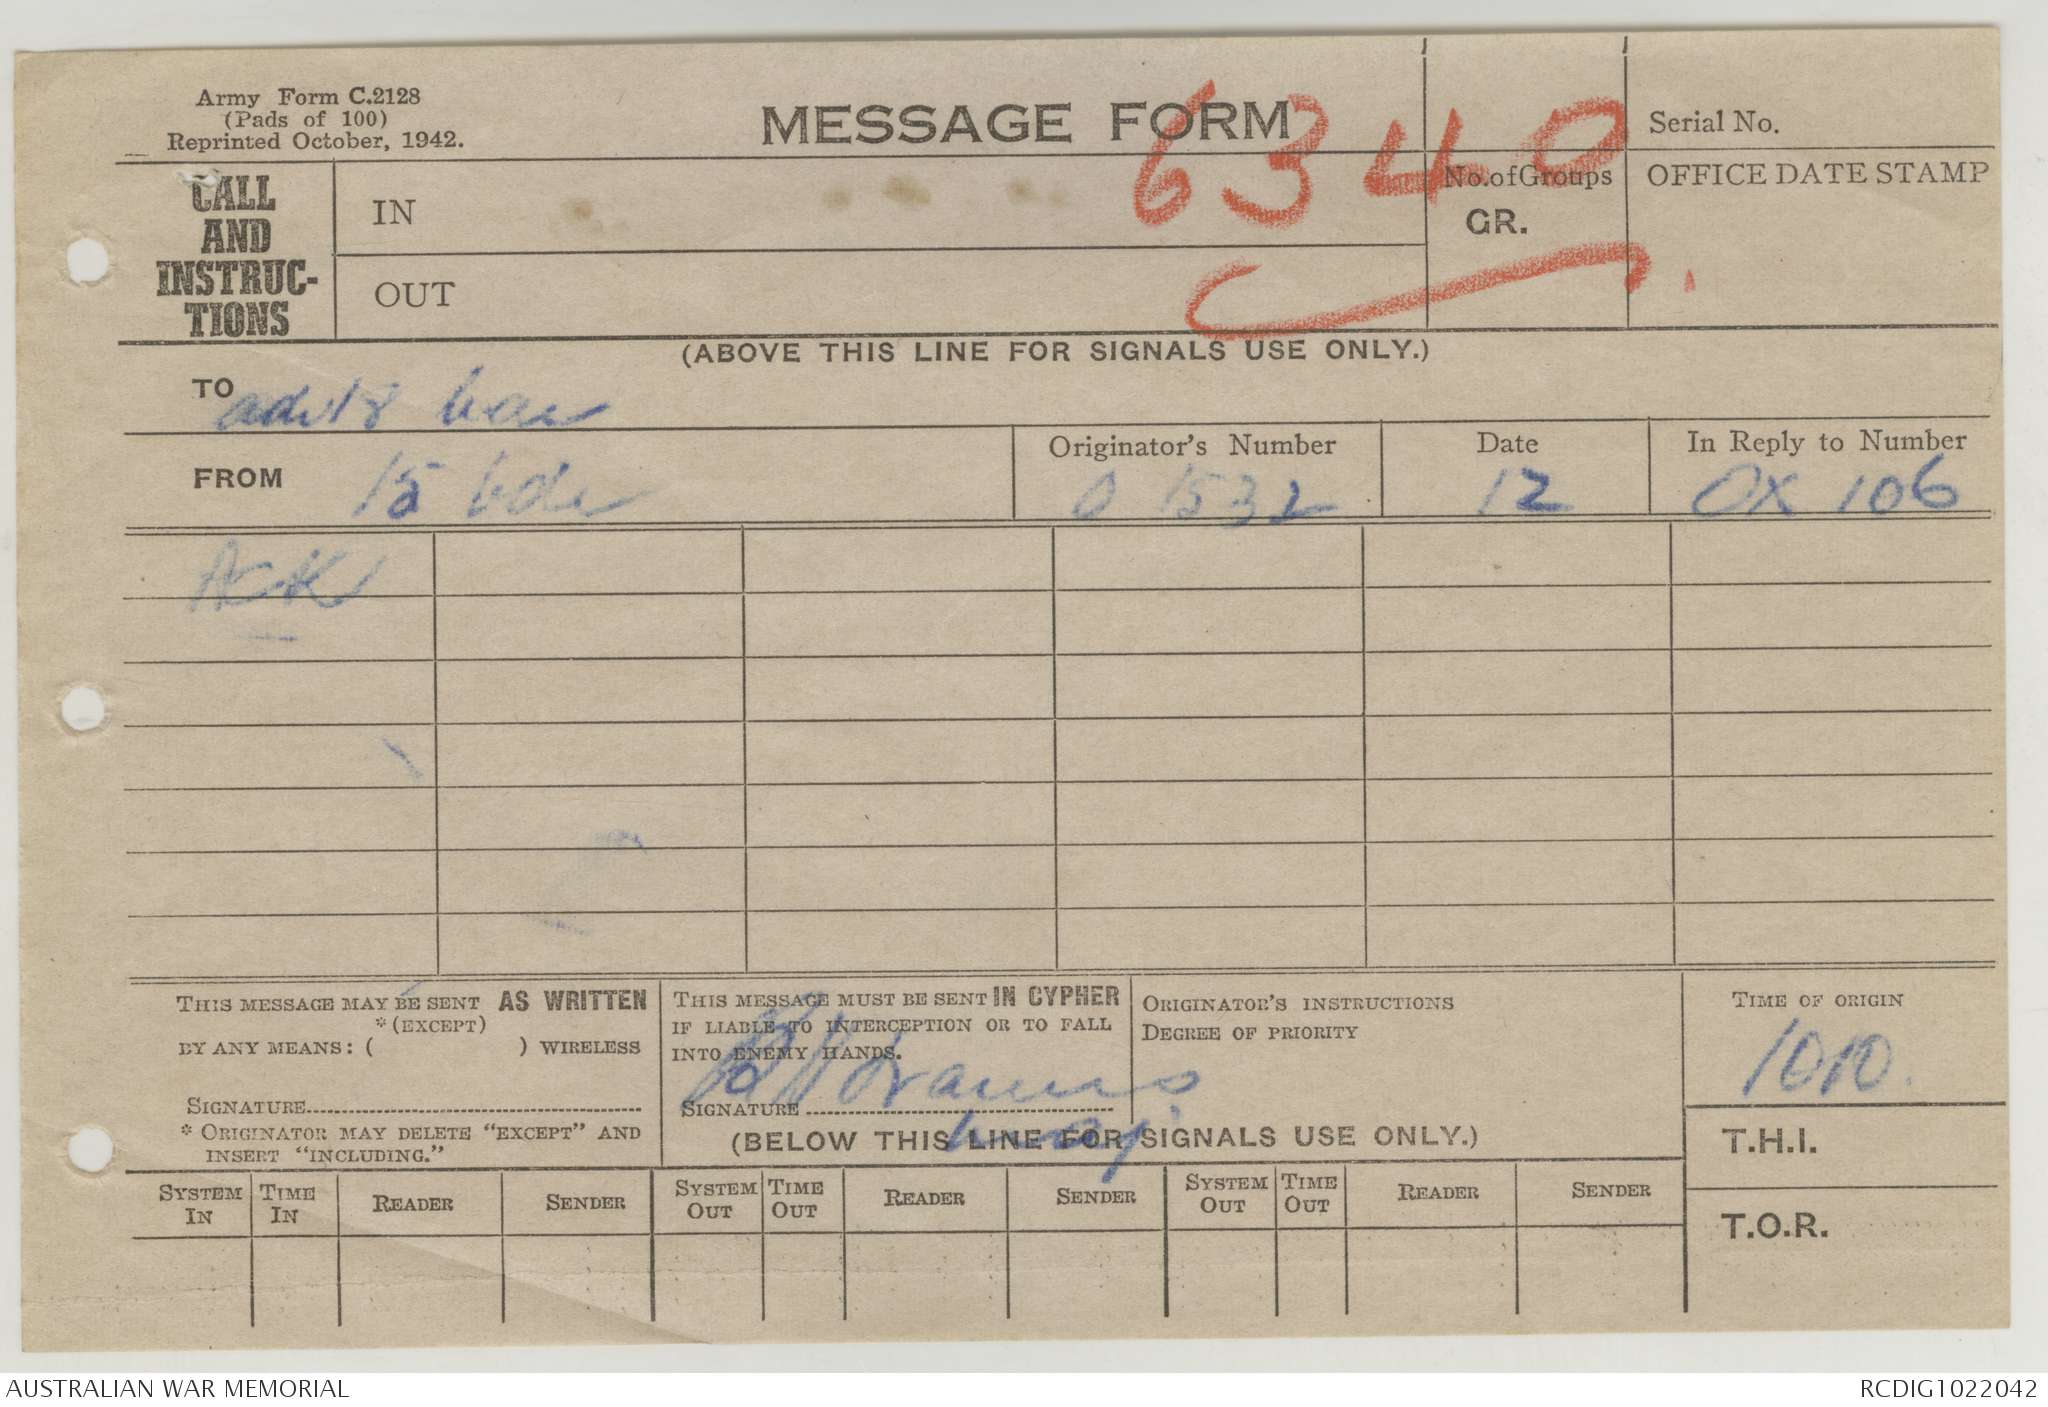 Army Form C.2128
(Pads of 100)
Reprinted October, 1942.
MESSAGE FORM
6340
Serial No.
CALL
AND
INSTRUC-
TIONS
IN
No. of Groups
GR.
OFFICE DATE STAMP
OUT
(ABOVE THIS LINE FOR SIGNALS USE ONLY.)
TO
FROM 15 bde
Originator's Number
O 1532
Date
12
In Reply to Number
OX 106
ACK
THIS MESSAGE MAY BE SENT AS WRITTEN
*(EXCEPT)
BY ANY MEANS: ( ) WIRELESS
SIGNATURE
* ORIGINATOR MAY DELETE "EXCEPT" AND
INSERT "INCLUDING."
THIS MESSAGE MUST BE SENT IN CYPHER
IF LIABLE TO INTERCEPTION OR TO FALL
INTO ENEMY HANDS.
SIGNATURE
ORIGINATOR'S INSTRUCTIONS
DEGREE OF PRIORITY
TIME OF ORIGIN
1010.
(BELOW THIS LINE FOR SIGNALS USE ONLY.)
T.H.I.
T.O.R.
SYSTEM IN
TIME IN
READER
SENDER
SYSTEM OUT
TIME OUT
READER
SENDER
SYSTEM OUT
TIME OUT
READER
SENDER
AUSTRALIAN WAR MEMORIAL
RCDIG1022042